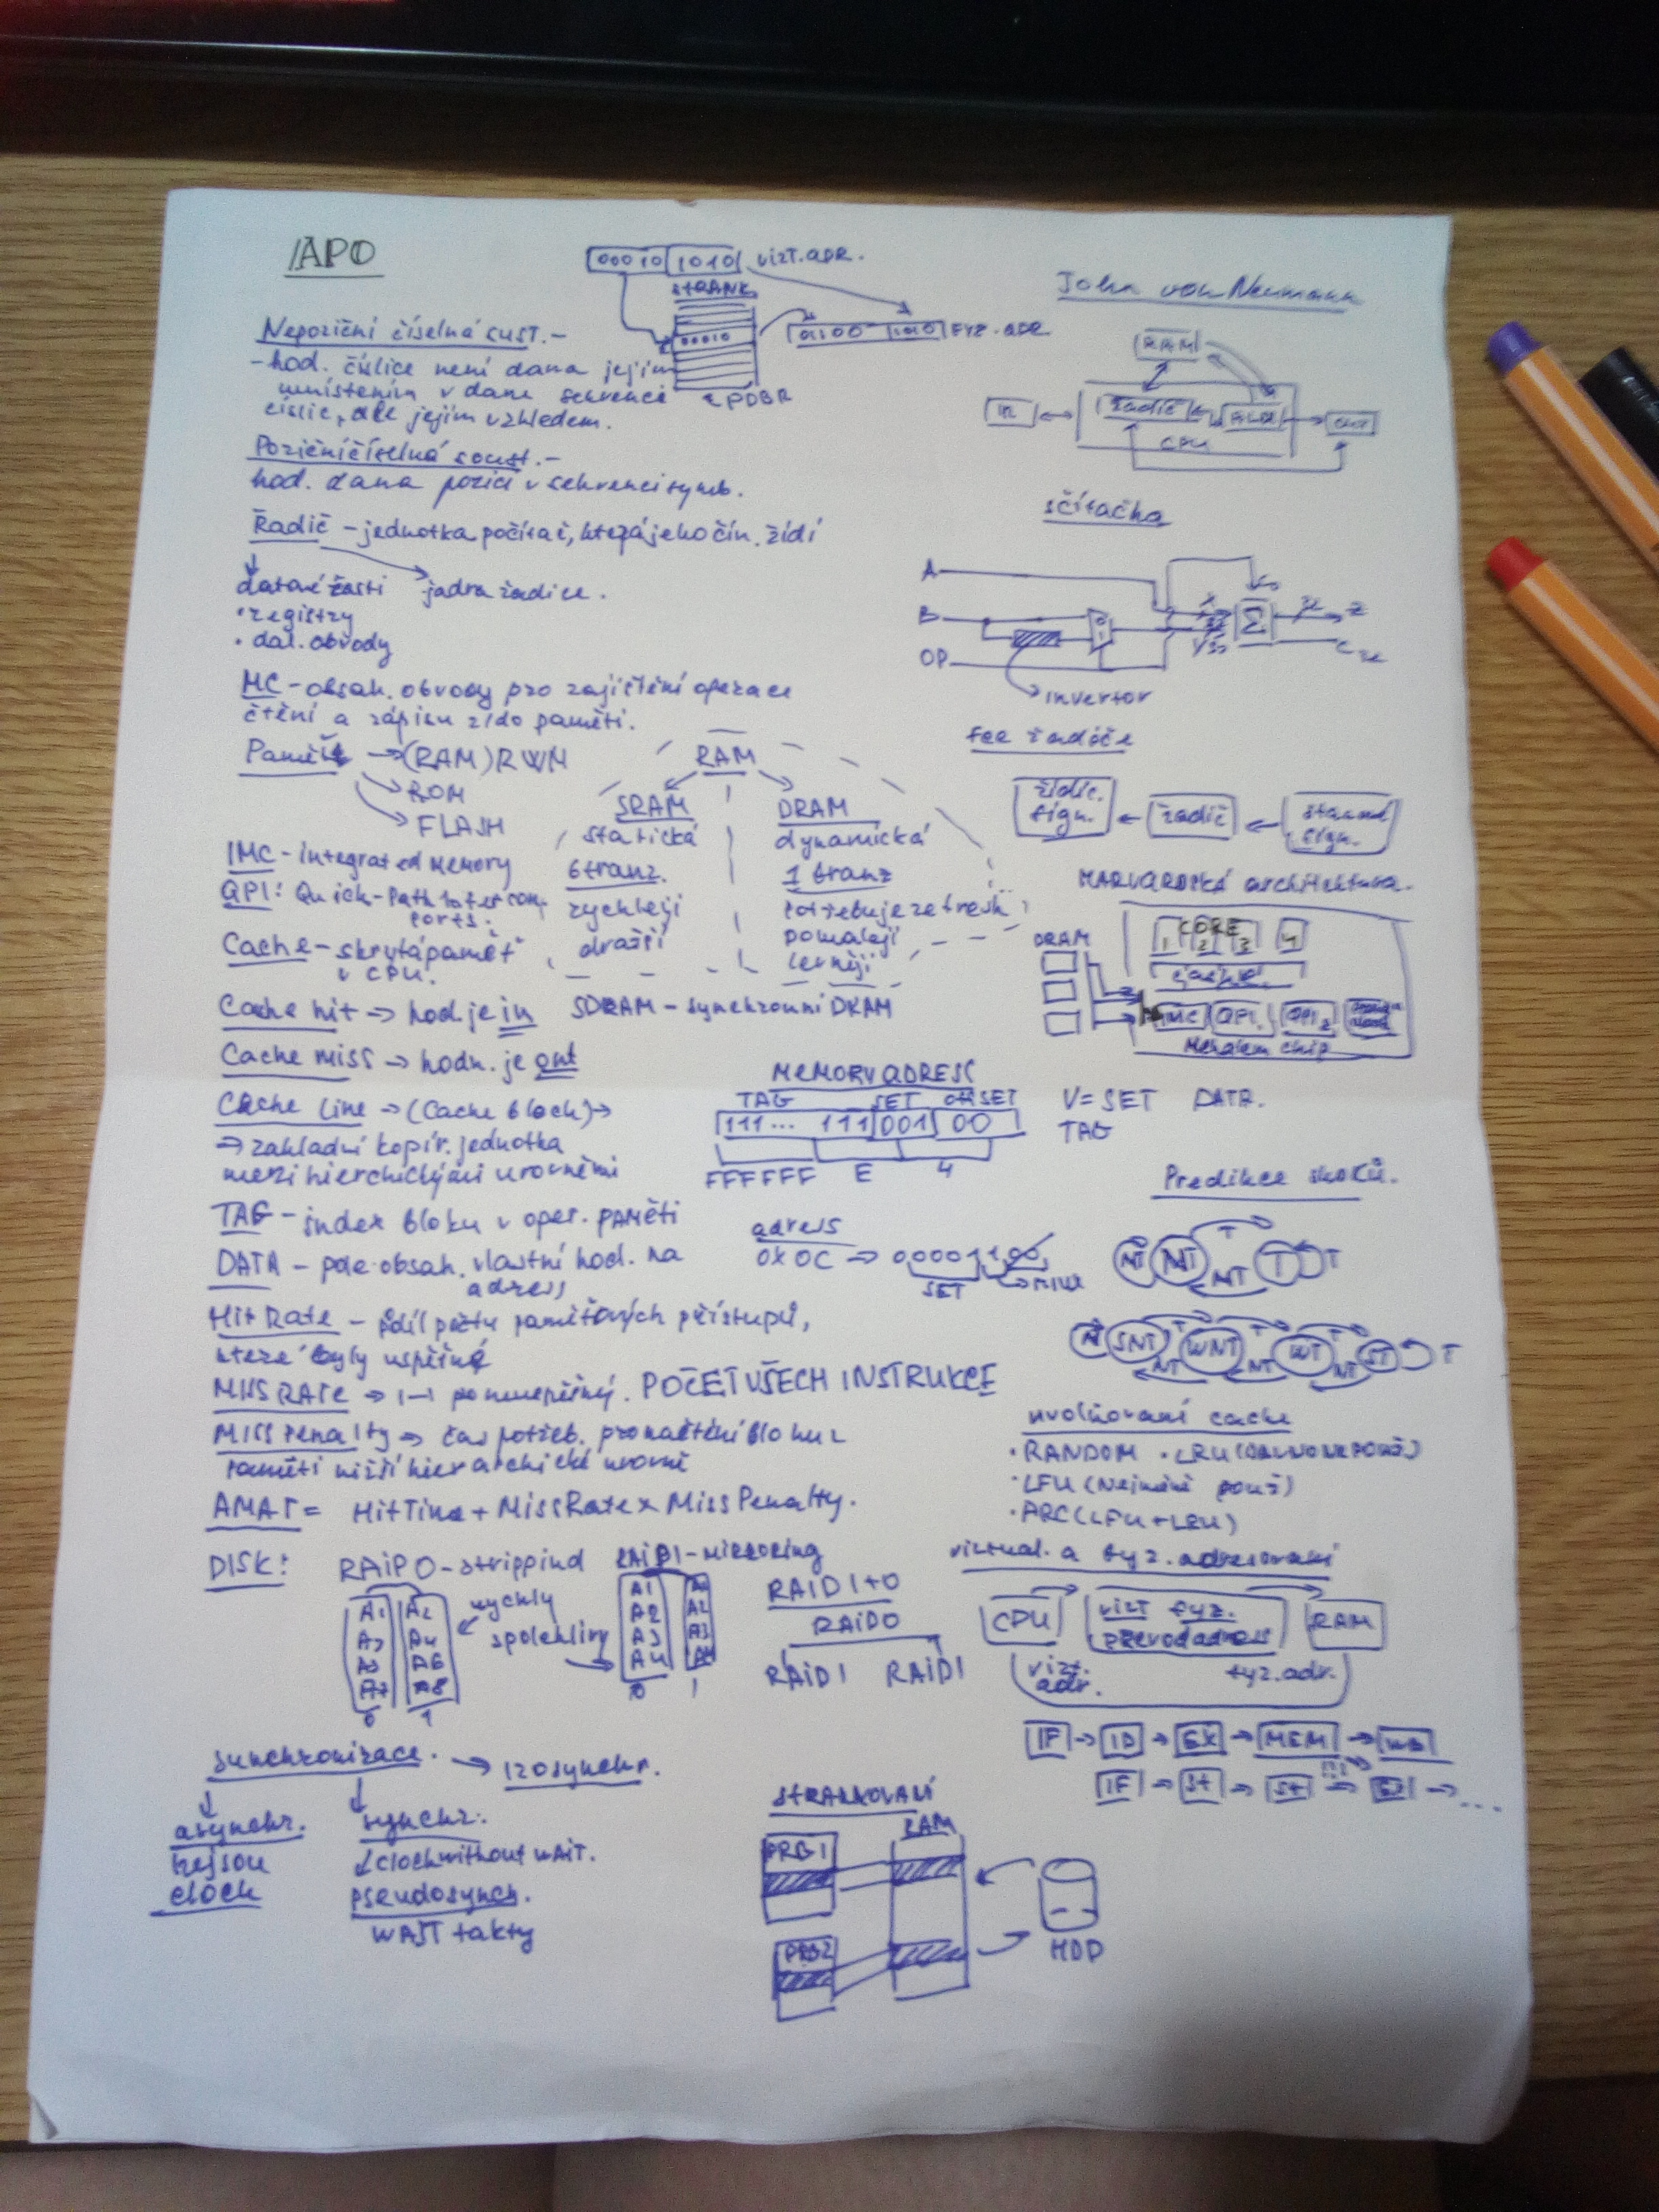 APO
00010 1010 virt. adr.
STRANK
00010
0100 1010 FYZ. ADR
PDBR
Nepoziční číselná soust. -
- hod. číslice není dana jejím
umístením v dane sekvenci
číslic, ale jejím vzhledem.
Poziční číselná soust. -
hod. dana pozici v sekvenci symb.
Řadič - jednotka počítač, která jeho čin. řídí
datové části jadra řadice.
• registry
• dal. obvody
MC - obsah. obvody pro zajištění operace
čtění a zápisu z/do paměti.
Paměť → (RAM) RWM
ROM
FLASH
IMC - integrated Memory
QPI: Quick-Path Intercon.
Cache - skrytá paměť
v CPU.
Cache hit → hod. je in
Cache miss → hodn. je out
Cache line → (Cache block) →
→ zakladní kopír. jednotka
mezi hierchickými urovněmi
TAG - index bloku v oper. paměti
DATA - pole obsah. vlastní hod. na
adress
Hit Rate - podíl počtu paměťových přístupů,
ktere byly uspěšné
MISS RATE → 1-1 po neuspěšný. POČET VŠECH INSTRUKCE
MISS Penalty → čas potřeb. pro načtění bloku z
paměti nižší hierarchické urovně
AMAT = HitTime + MissRate x MissPenalty.
RAM
SRAM DRAM
statická dynamická
6 tranz. 1 tranz
rychleji potřebuje refresh
dražší pomaleji
levněji
SDRAM - synchronní DRAM
MEMORY ADRESS
TAG SET OffSET
111... 111 001 00
FFFFFF E 4
V= SET DATA.
TAG
adress
0x0C → 00001100
SET
DISK:
RAID 0 - strippind
A1 A2
A3 A4
A5 A6
A7 A8
0 1
rychly
spolehlivy
RAID1 - Mirroring
A1 A1
A2 A2
A3 A3
A4 A4
0 1
RAID 1+0
RAID0
RAID1 RAID1
synchronizace. → izosynchr.
asynchr. synchr.
nejsou clock without WAIT.
clock pseudosynch.
WAIT takty
STRANKOVANÍ
RAM
PRG1
PRG2
HDD
John von Neumann
RAM
IN řadič ALU OUT
CPU
sčítačka
A
B
OP
Σ
Z
invertor
fce řadiče
řídíc. sign. ← řadič ← stavové sign.
HARVARDSKÁ architektura.
DRAM
CORE
1 2 3 4
cache
IMC QPI1 QPI2
Nehalem chip
Predikce skoků.
NT NT T T
T
NT
SNT WNT WT ST T
T T T
NT NT NT
uvolňovaní cache
• RANDOM • LRU (DAVNO NEPOUŽ)
• LFU (Nejméně použ)
• ARC (LFU + LRU)
virtual. a fyz. adresovaní
CPU virt fyz. RAM
převod adress
virt. adr. fyz. adr.
IF → ID → EX → MEM → WB
IF → St → St → EX → ...